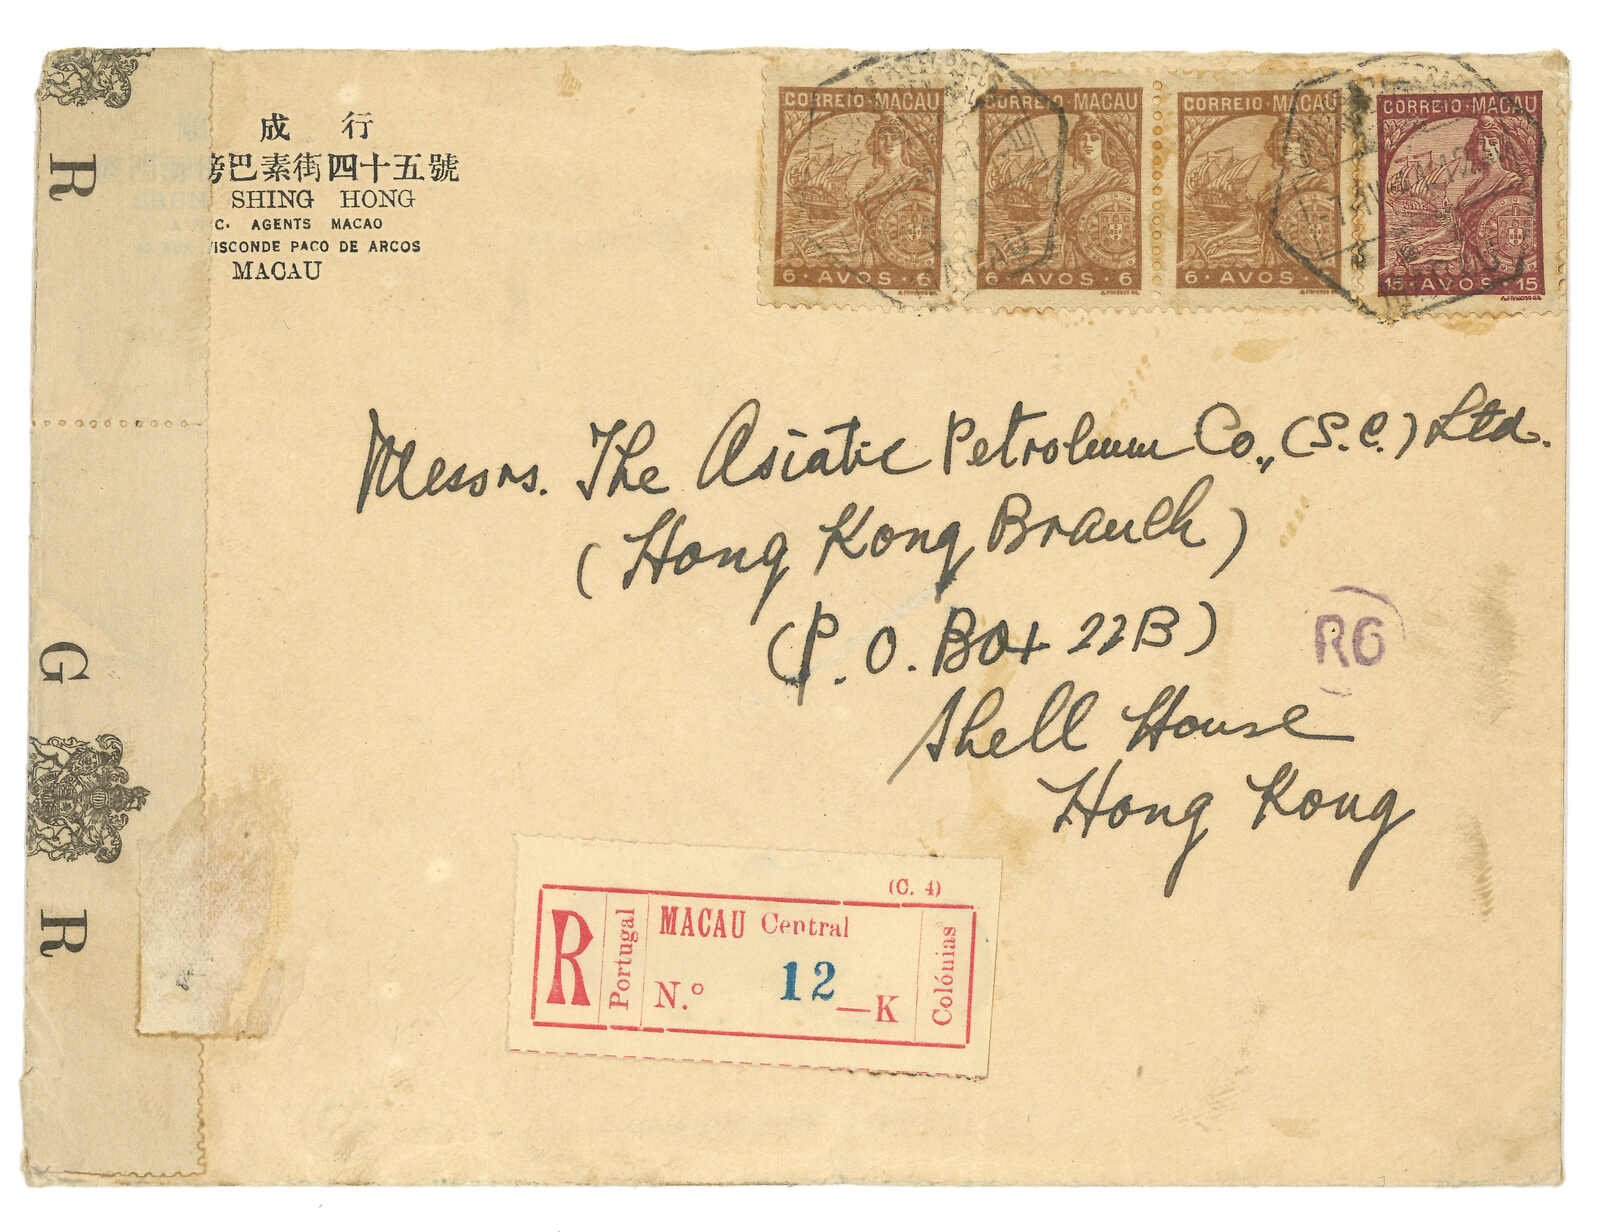 成 行
巴素街四十五號
SHING HONG
C. AGENTS MACAO
VISCONDE PACO DE ARCOS
MACAU
CORREIO · MACAU
6 · AVOS · 6
CORREIO · MACAU
6 · AVOS · 6
CORREIO · MACAU
6 · AVOS · 6
CORREIO · MACAU
15 · AVOS · 15
R
G
R
Messrs. The Asiatic Petroleum Co., (S.C.) Ltd.
(Hong Kong Branch)
(P.O. Box 22B)
Shell House
Hong Kong
R6
(C. 4)
R
Portugal
MACAU Central
N.º 12 —K
Colónias